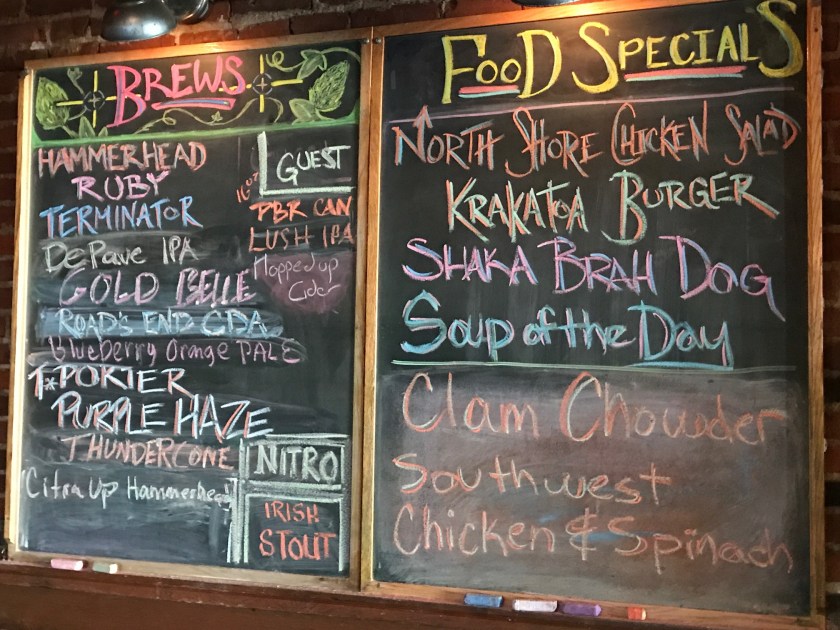 BREWS
HAMMERHEAD
RUBY
TERMINATOR
DePave IPA
GOLD BELLE
ROAD'S END CDA
Blueberry Orange PALE
PORTER
PURPLE HAZE
THUNDERCONE
"Citra Up Hammerhead"
GUEST
16oz
PBR CAN
LUSH IPA
Hopped up
Cider
NITRO
IRISH
STOUT
FOOD SPECIALS
NORTH SHORE CHICKEN SALAD
KRAKATOA BURGER
SHAKA BRAH DOG
Soup of the Day
Clam Chowder
Southwest
Chicken & Spinach